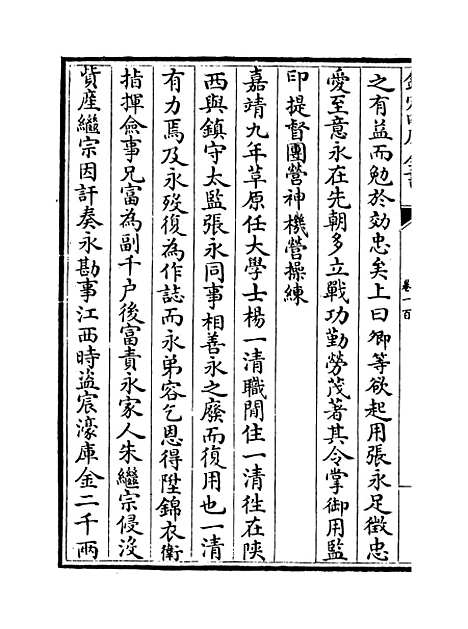 之有益而勉於効忠矣上曰卿等欲起用張永足徴忠
愛至意永在先朝多立戰功勤勞茂著其令掌御用監
印提督團營神機營操練
嘉靖九年草原任大學士楊一清職閒住一清徃在陜
西與鎮守太監張永同事相善永之廢而復用也一清
有力焉及永歿復為作誌而永弟容乞恩得陞錦衣衛
指揮僉事兄富為副千户後富責永家人朱繼宗侵沒
貲産繼宗因訐奏永勘事江西時盗宸濠庫金二千兩
卷一百